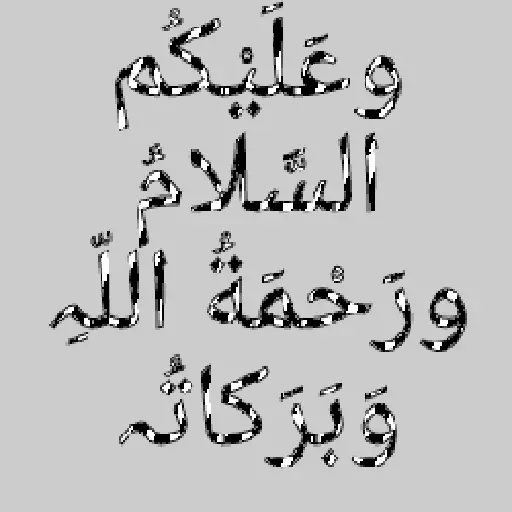 وعَلَيْكُم
السَّلامُ
ورَحْمَةُ اللّهِ
وَبَرَكاتُه